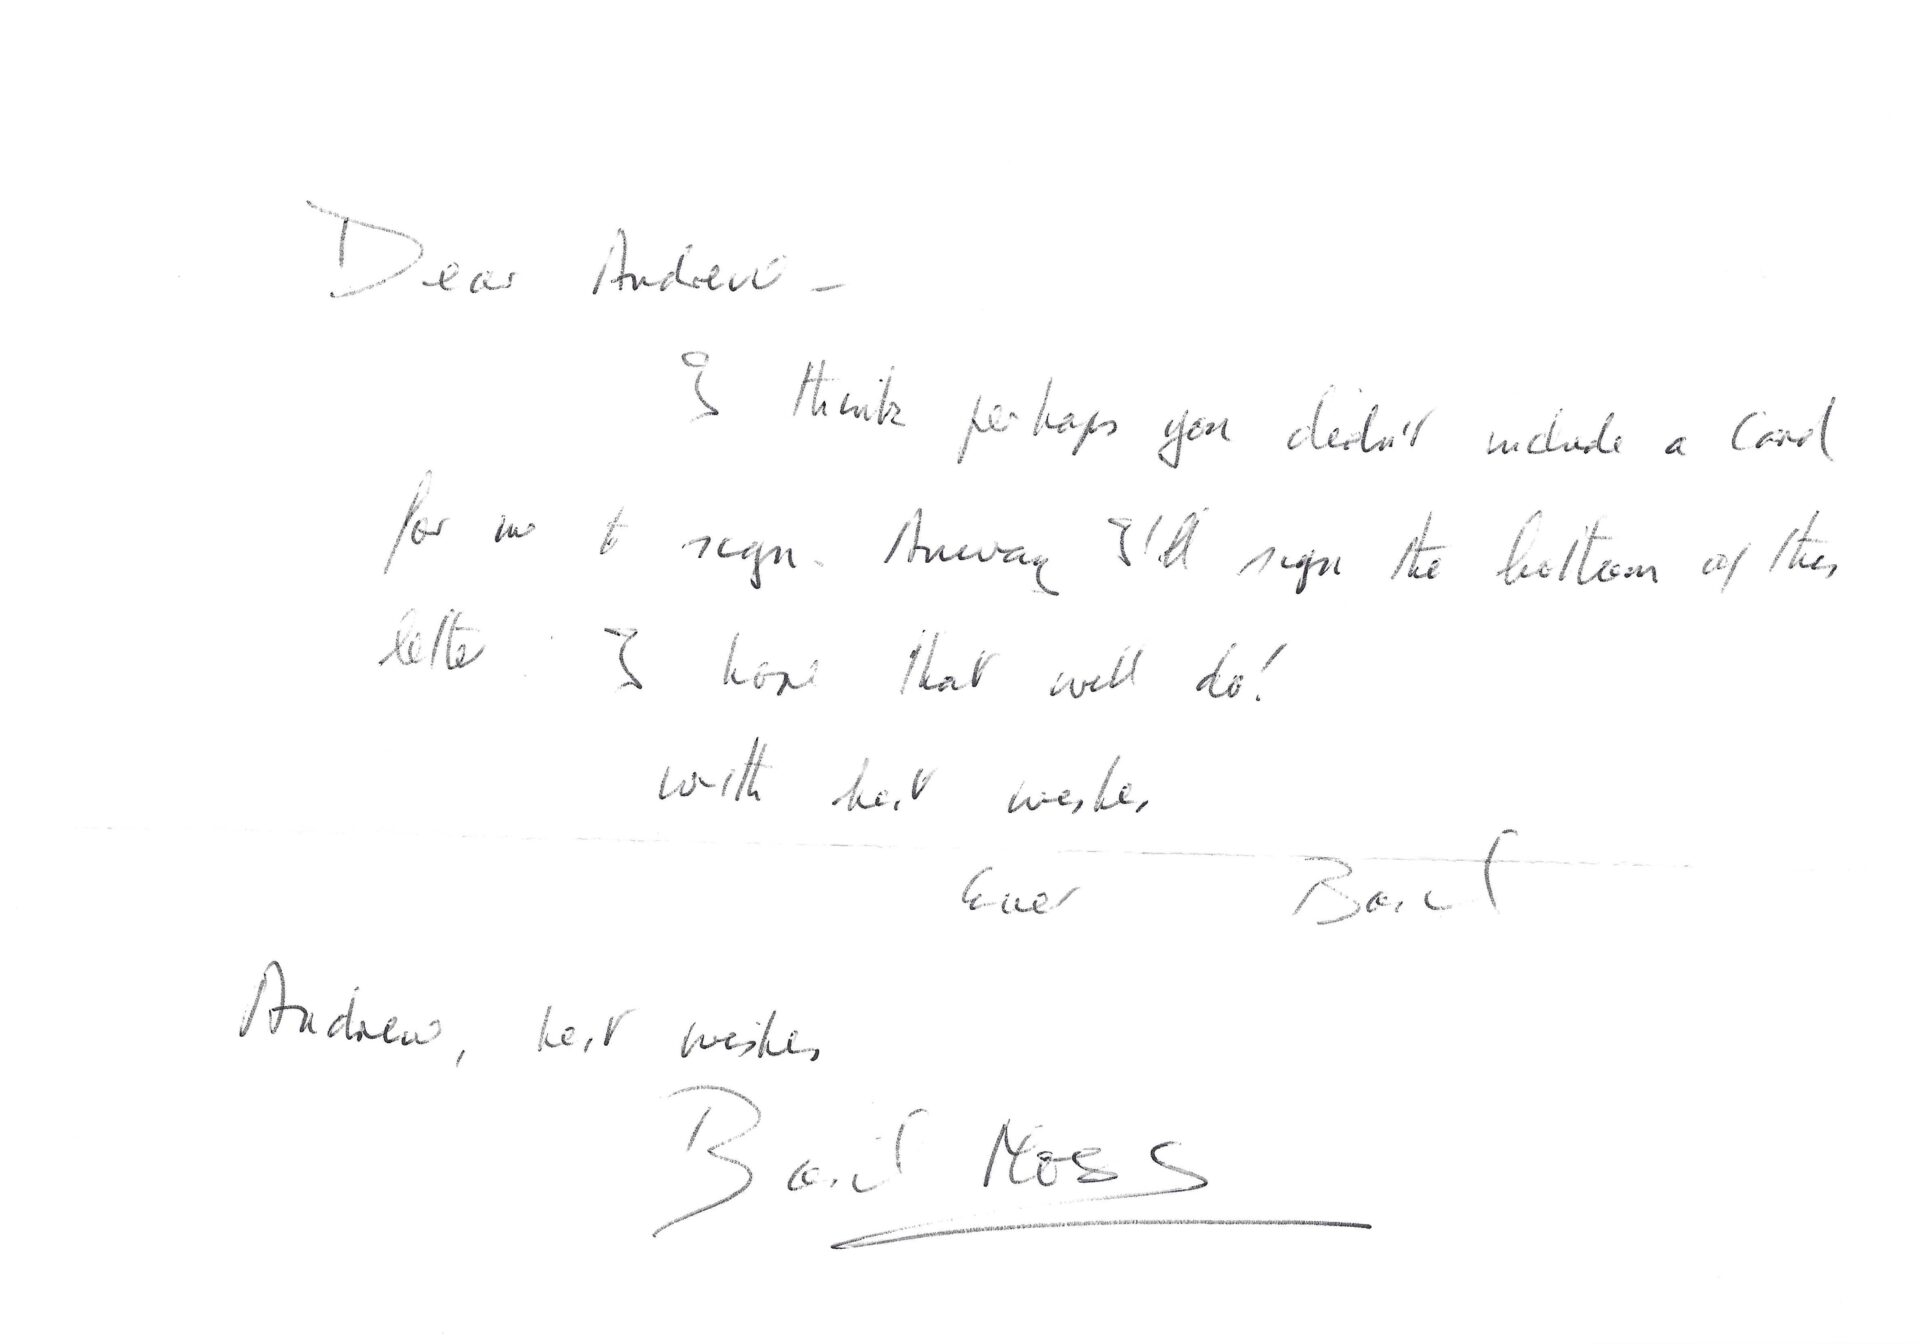 Dear Andrew -
I think perhaps you didn't include a card
for me to sign. Anway I'll sign the bottom of this
letter. I hope that will do!
with best wishes
Ever Basil
Andrew, best wishes
Basil Moss